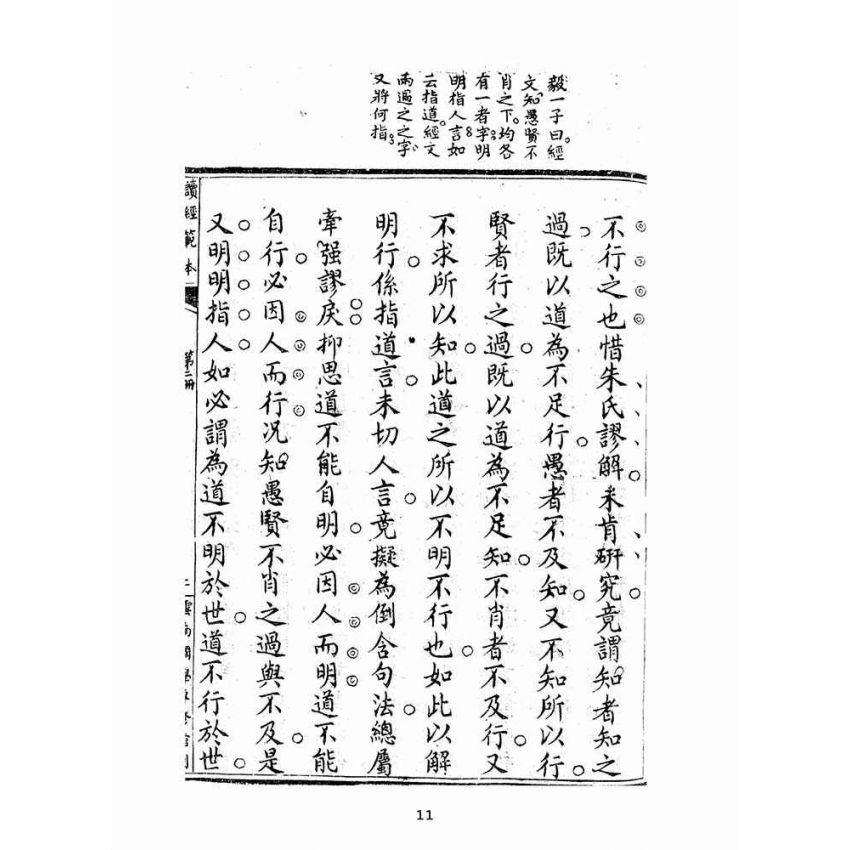 毅一子曰。經
文知愚賢不
肖之下。均各
有一者字。明
明指人言。如
云指道。經文
兩過之之字。
又將何指。
不行之也惜朱氏謬解。未肯研究。竟謂知者知之
過。既以道為不足行。愚者不及知。又不知所以行。
賢者行之過。既以道為不足知。不肖者不及行。又
不求所以知。此道之所以不明不行也。如此以解
明行。係指道言。未切人言。竟擬為倒含句法。總屬
牽强謬戾。抑思道不能自明。必因人而明。道不能
自行。必因人而行。况知愚賢不肖之過與不及。是
又明明指人。如必謂為道不明於世。道不行於世。
讀經範本
第二冊
11